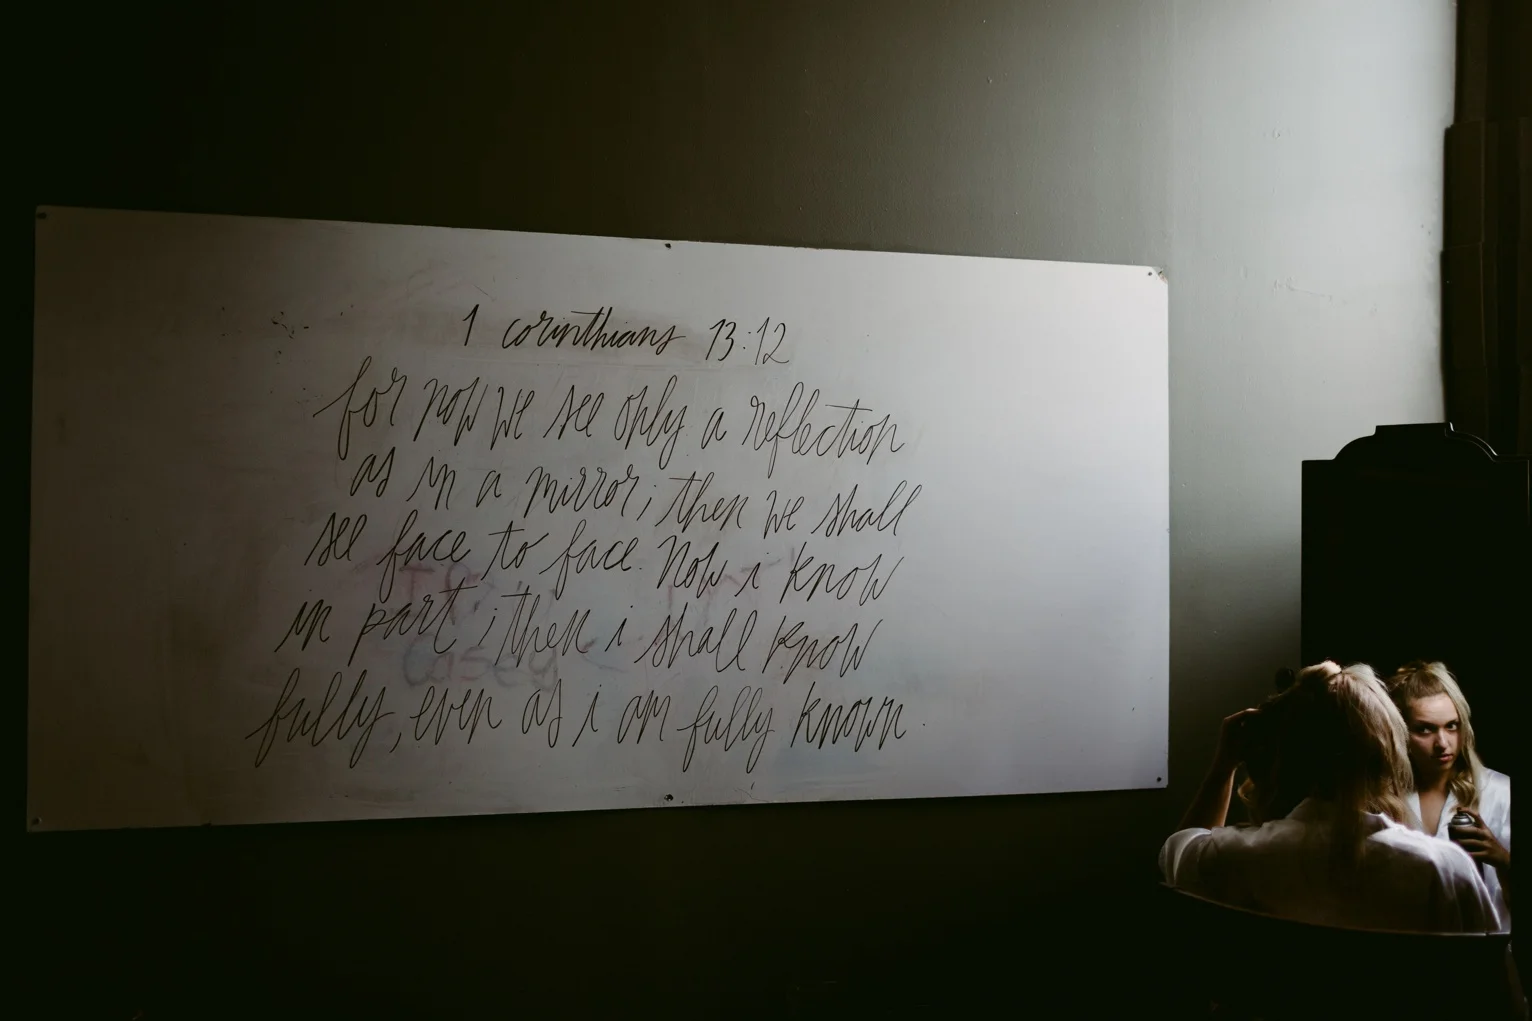 1 corinthians 13:12
for now we see only a reflection
as in a mirror; then we shall
see face to face. Now i know
in part; then i shall know
fully, even as i am fully known.
Casey